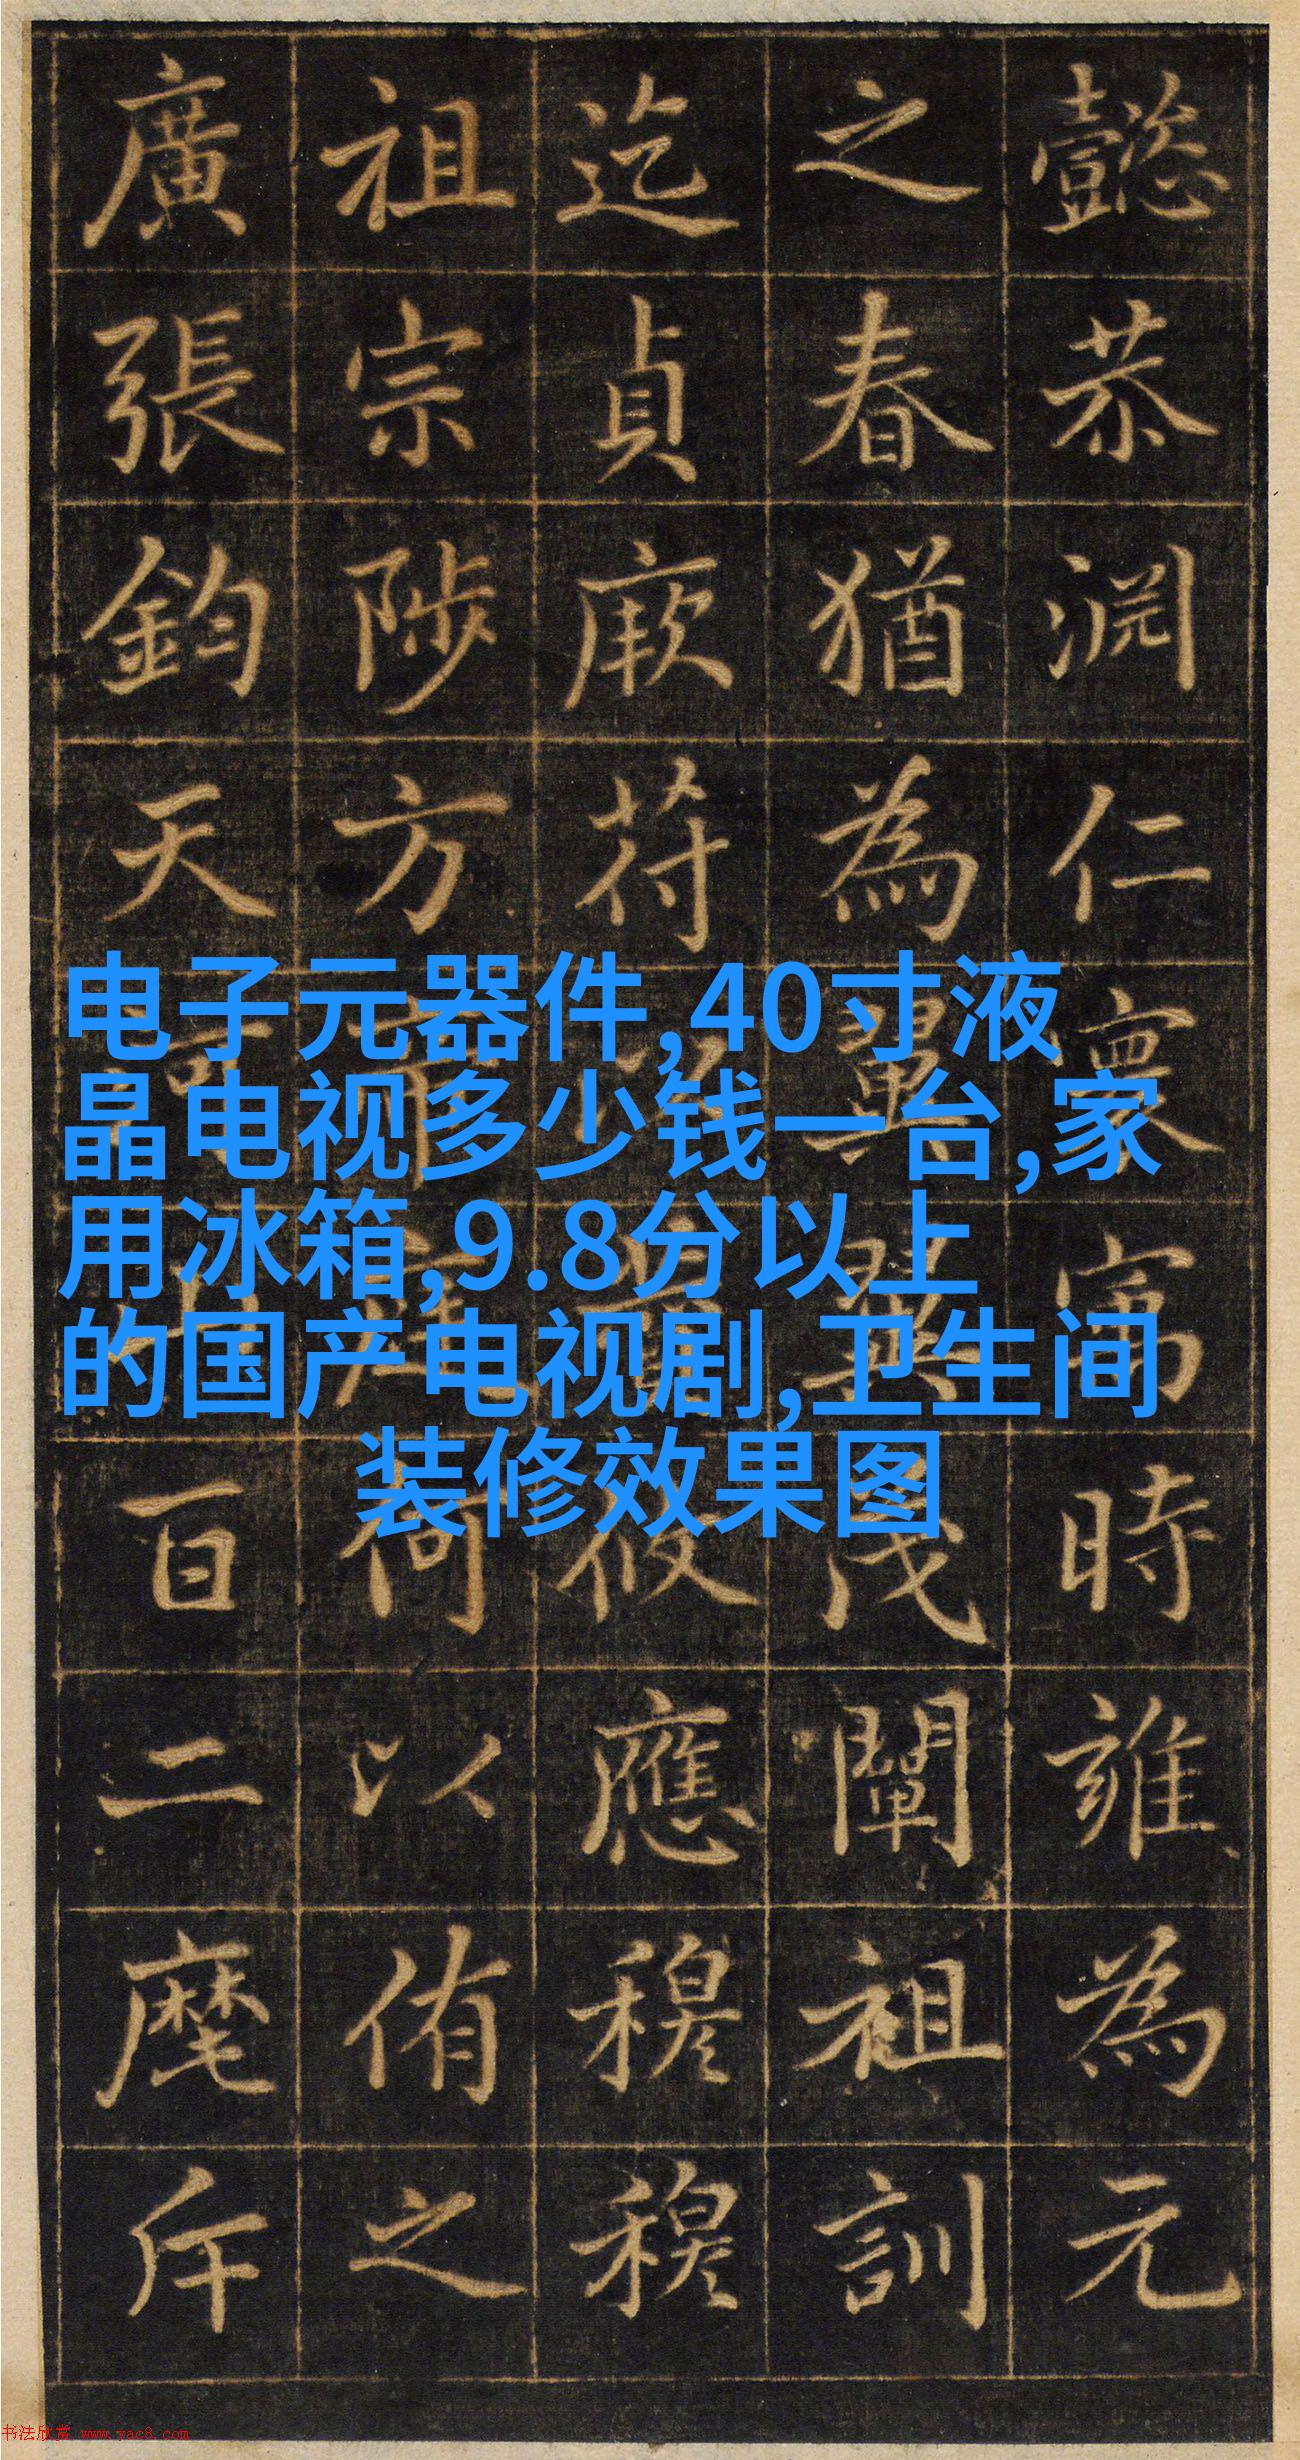 懿恭渊仁懷甯時雍為元
之春猶為翼翼茂闡祖訓
迄貞厥苻攸應穆穆
祖宗陟方何以侑之
廣張鈞天百二麾斥
电子元器件,40寸液
晶电视多少钱一台,家
用冰箱,9.8分以上
的国产电视剧,卫生间
装修效果图
书法欣赏 www.yac8.com